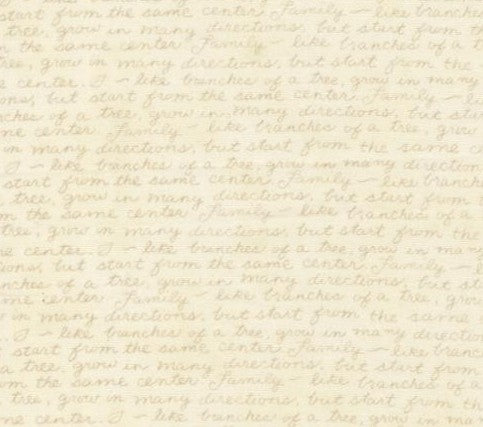 start from the same center. Family ~ like branches
tree, grow in many directions, but start from th
n the same center. Family ~ like branches of a t
ree, grow in many directions, but start from the
e center. I ~ like branches of a tree, grow in many
ons, but start from the same center. Family ~ li
ches of a tree, grow in many directions, but star
me center. Family ~ like branches of a tree, grow
in many directions, but start from the same c
I ~ like branches of a tree, grow in many direction
start from the same center. Family ~ like branch
tree, grow in many directions, but start from t
m the same center. Family ~ like branches of a
tree, grow in many directions, but start from the
e center. I ~ like branches of a tree, grow in man
ions, but start from the same center. Family ~ l
nches of a tree, grow in many directions, but st
me center. Family ~ like branches of a tree, grow
in many directions, but start from the same
. I ~ like branches of a tree, grow in many directio
start from the same center. Family ~ like branc
a tree, grow in many directions, but start from
om the same center. Family ~ like branches of a
tree, grow in many directions, but start from th
ne center. I ~ like branches of a tree, grow in ma